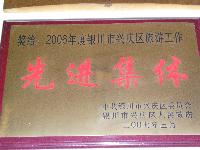 奖给：2006年度银川市兴庆区旅游工作
先进集体
中共银川市兴庆区委员会
银川市兴庆区人民政府
二〇〇七年三月